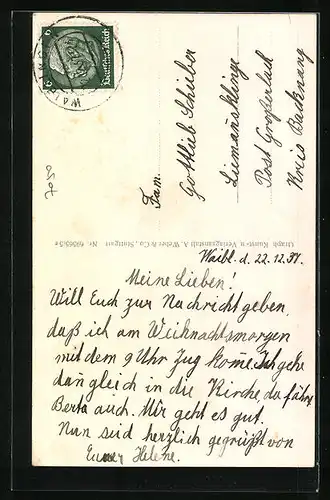 Waibl. d. 22.12.37.
Meine Lieben!
Will Euch zur Nachricht geben,
daß ich am Weihnachtsmorgen
mit dem 9 Uhr Zug kom̅e. Ich gehe
dan̅ gleich in die Kirche, da fährt
Berta auch. Mir geht es gut.
Nun seid herzlich gegrüßt von
Eurer Helene.
Fam.
Gottlieb Schieber
Post Großerlach
Kreis Backnang
Deutsches Reich
6 6
Uvagh Kunst- u. Verlagsanstalt A. Weber & Co., Stuttgart Nr.